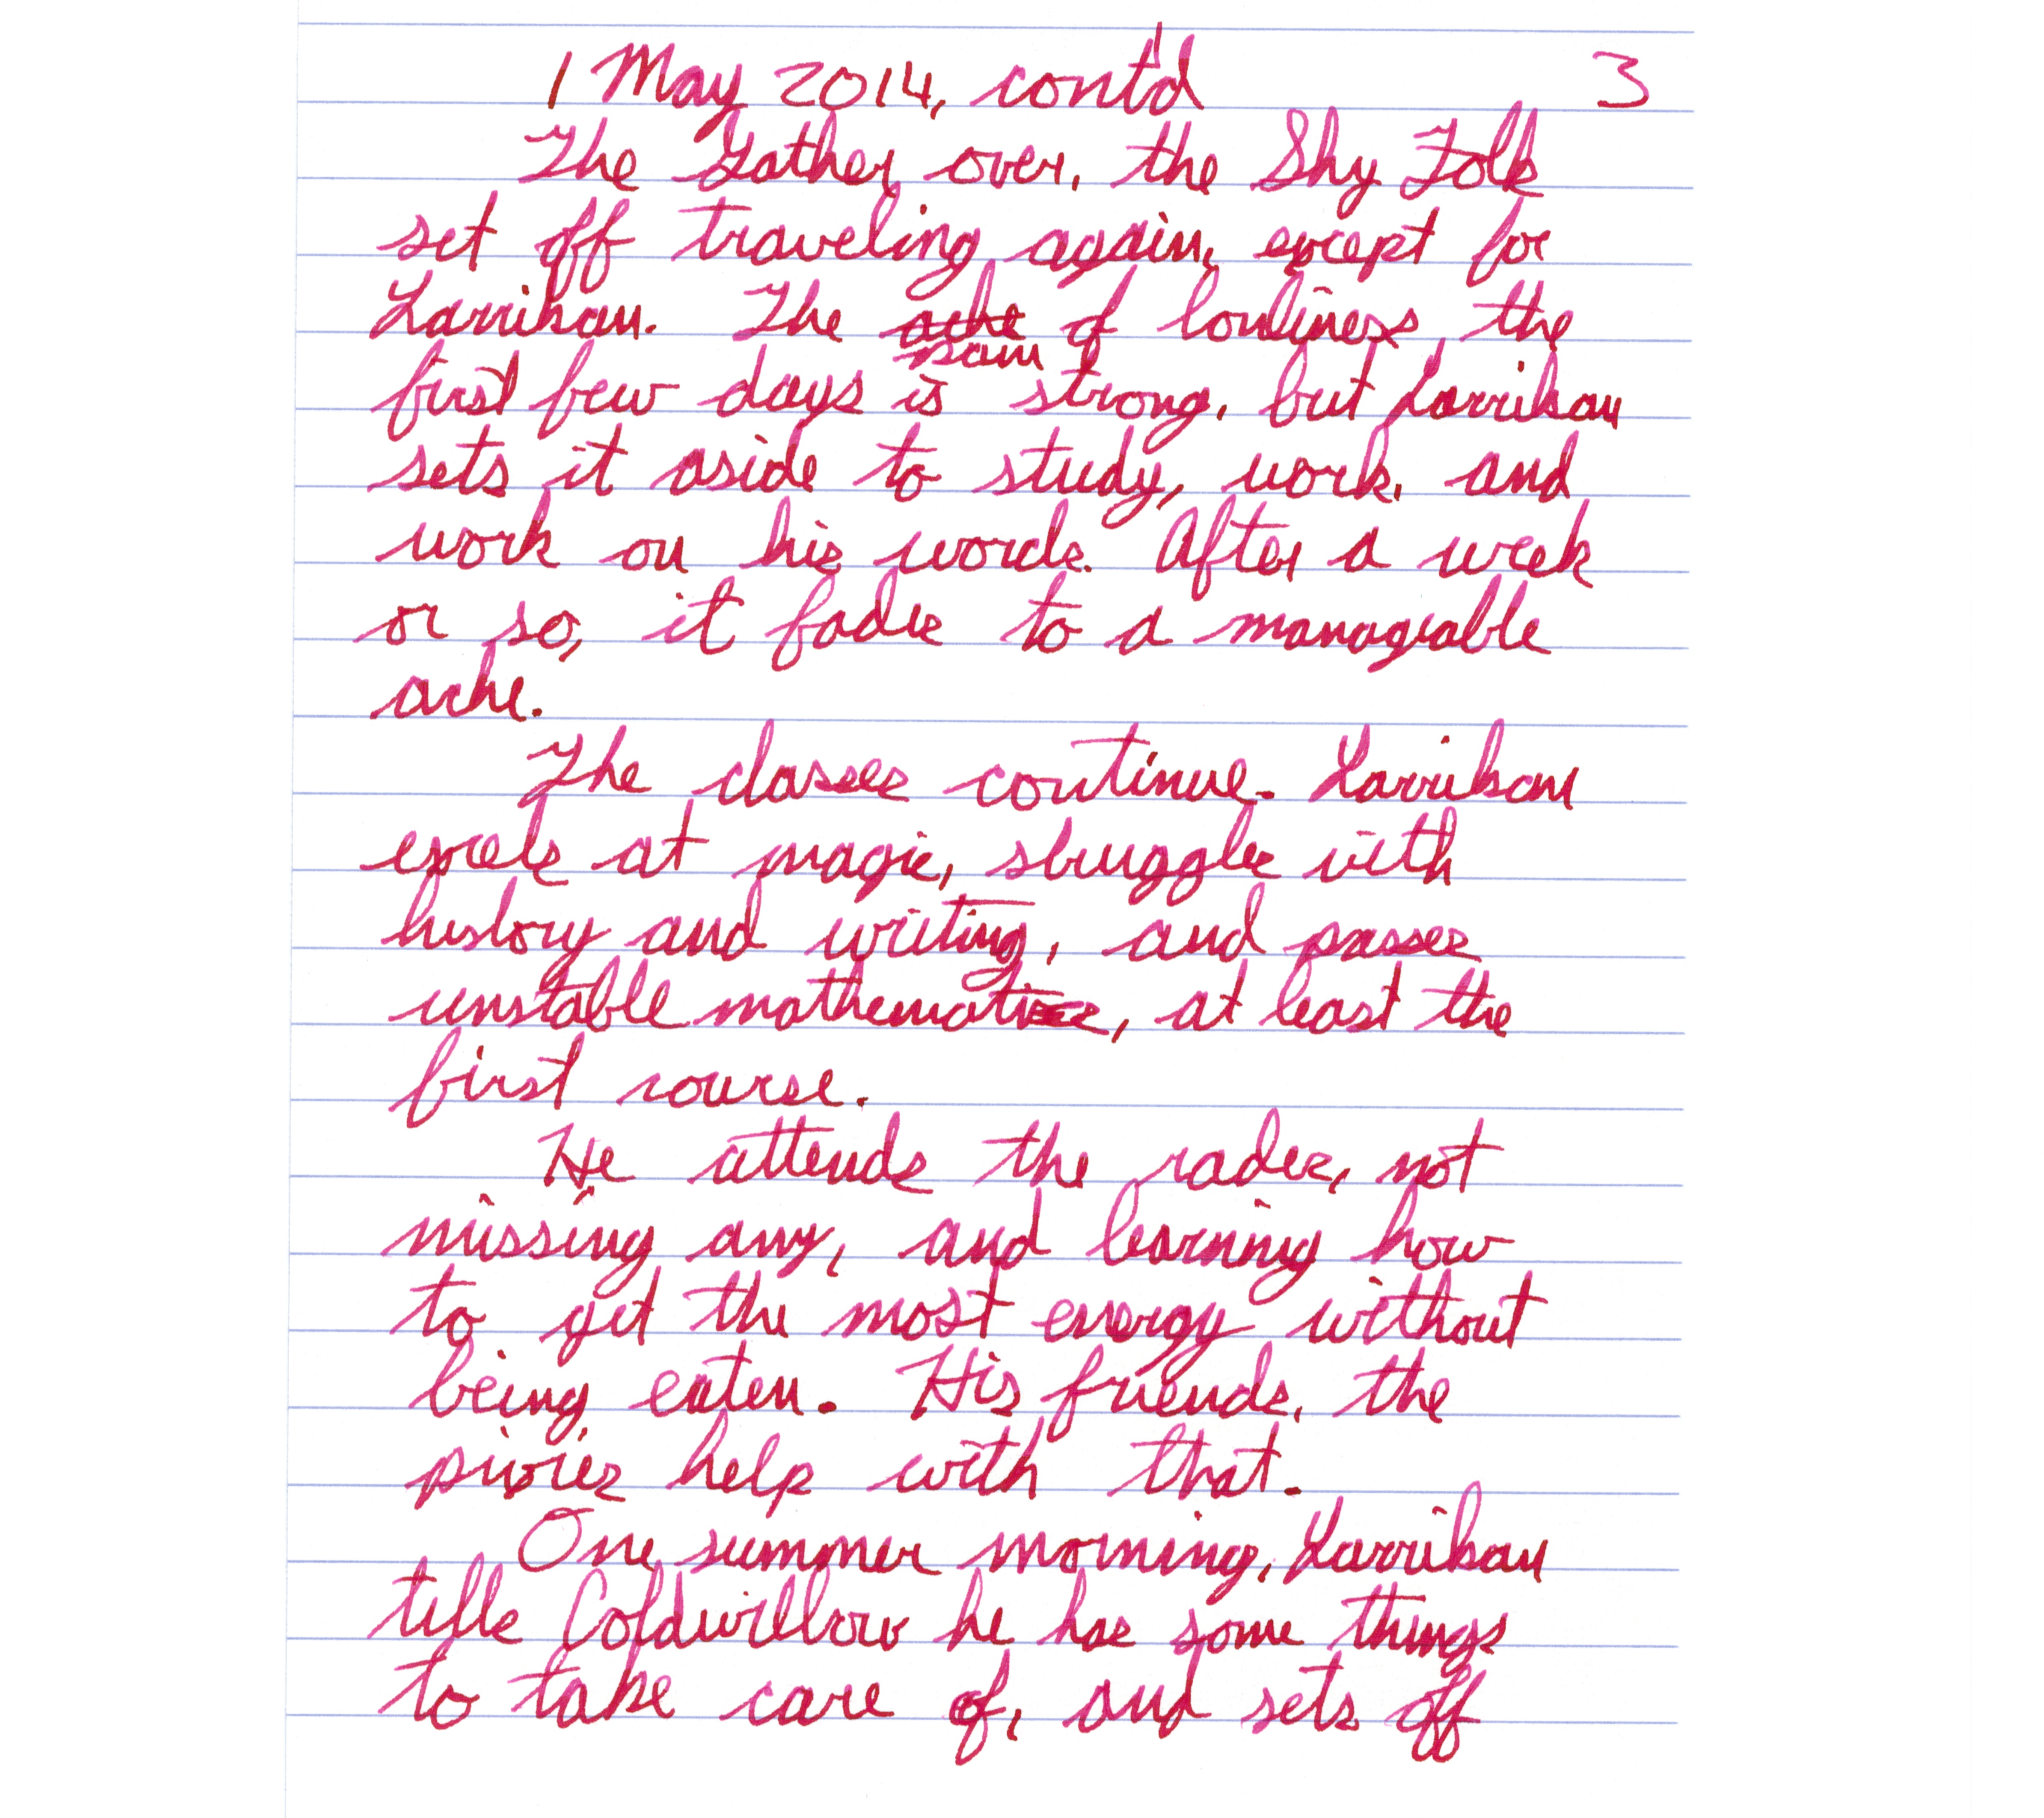 1 May 2014, cont'd 3
The Gather over, the Shy Folk
set off traveling again, except for
Larrikan. The ache of lonliness the
pain
first few days is strong, but Larrikan
sets it aside to study, work, and
work on his words. After a week
or so, it fades to a manageable
ache.
The classes continue. Larrikan
excels at magic, struggles with
history and writing, and passes
unstable mathematics, at least the
first course.
He attends the rades, not
missing any, and learning how
to get the most energy without
being eaten. His friends, the
pixies help with that.
One summer morning, Larrikan
tells Coldwillow he has some things
to take care of, and sets off